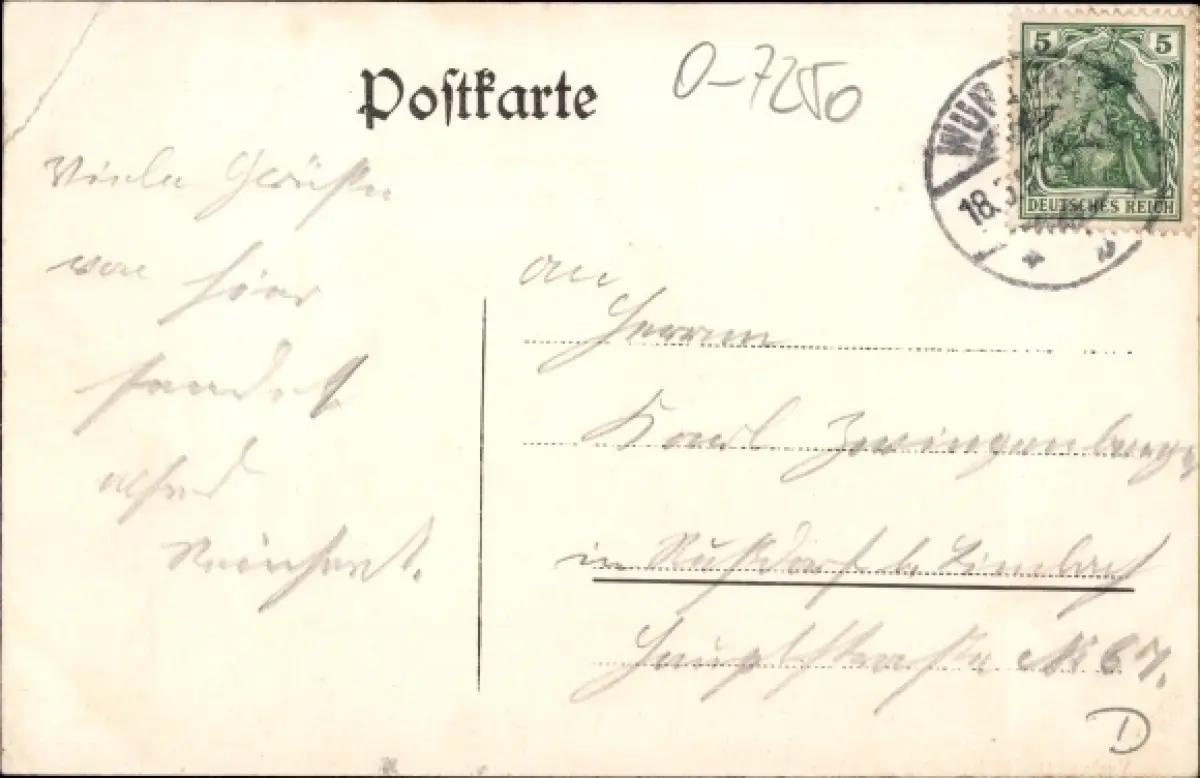 Postkarte
0-7250
5 5
DEUTSCHES REICH
WUR
18.3
Viele Grüße
von hier
sendet
Alfred
Reinhart.
An
Herrn
Karl Zwingenberger
in Rußdorf b. Limbach
Hauptstraße № 67.
D